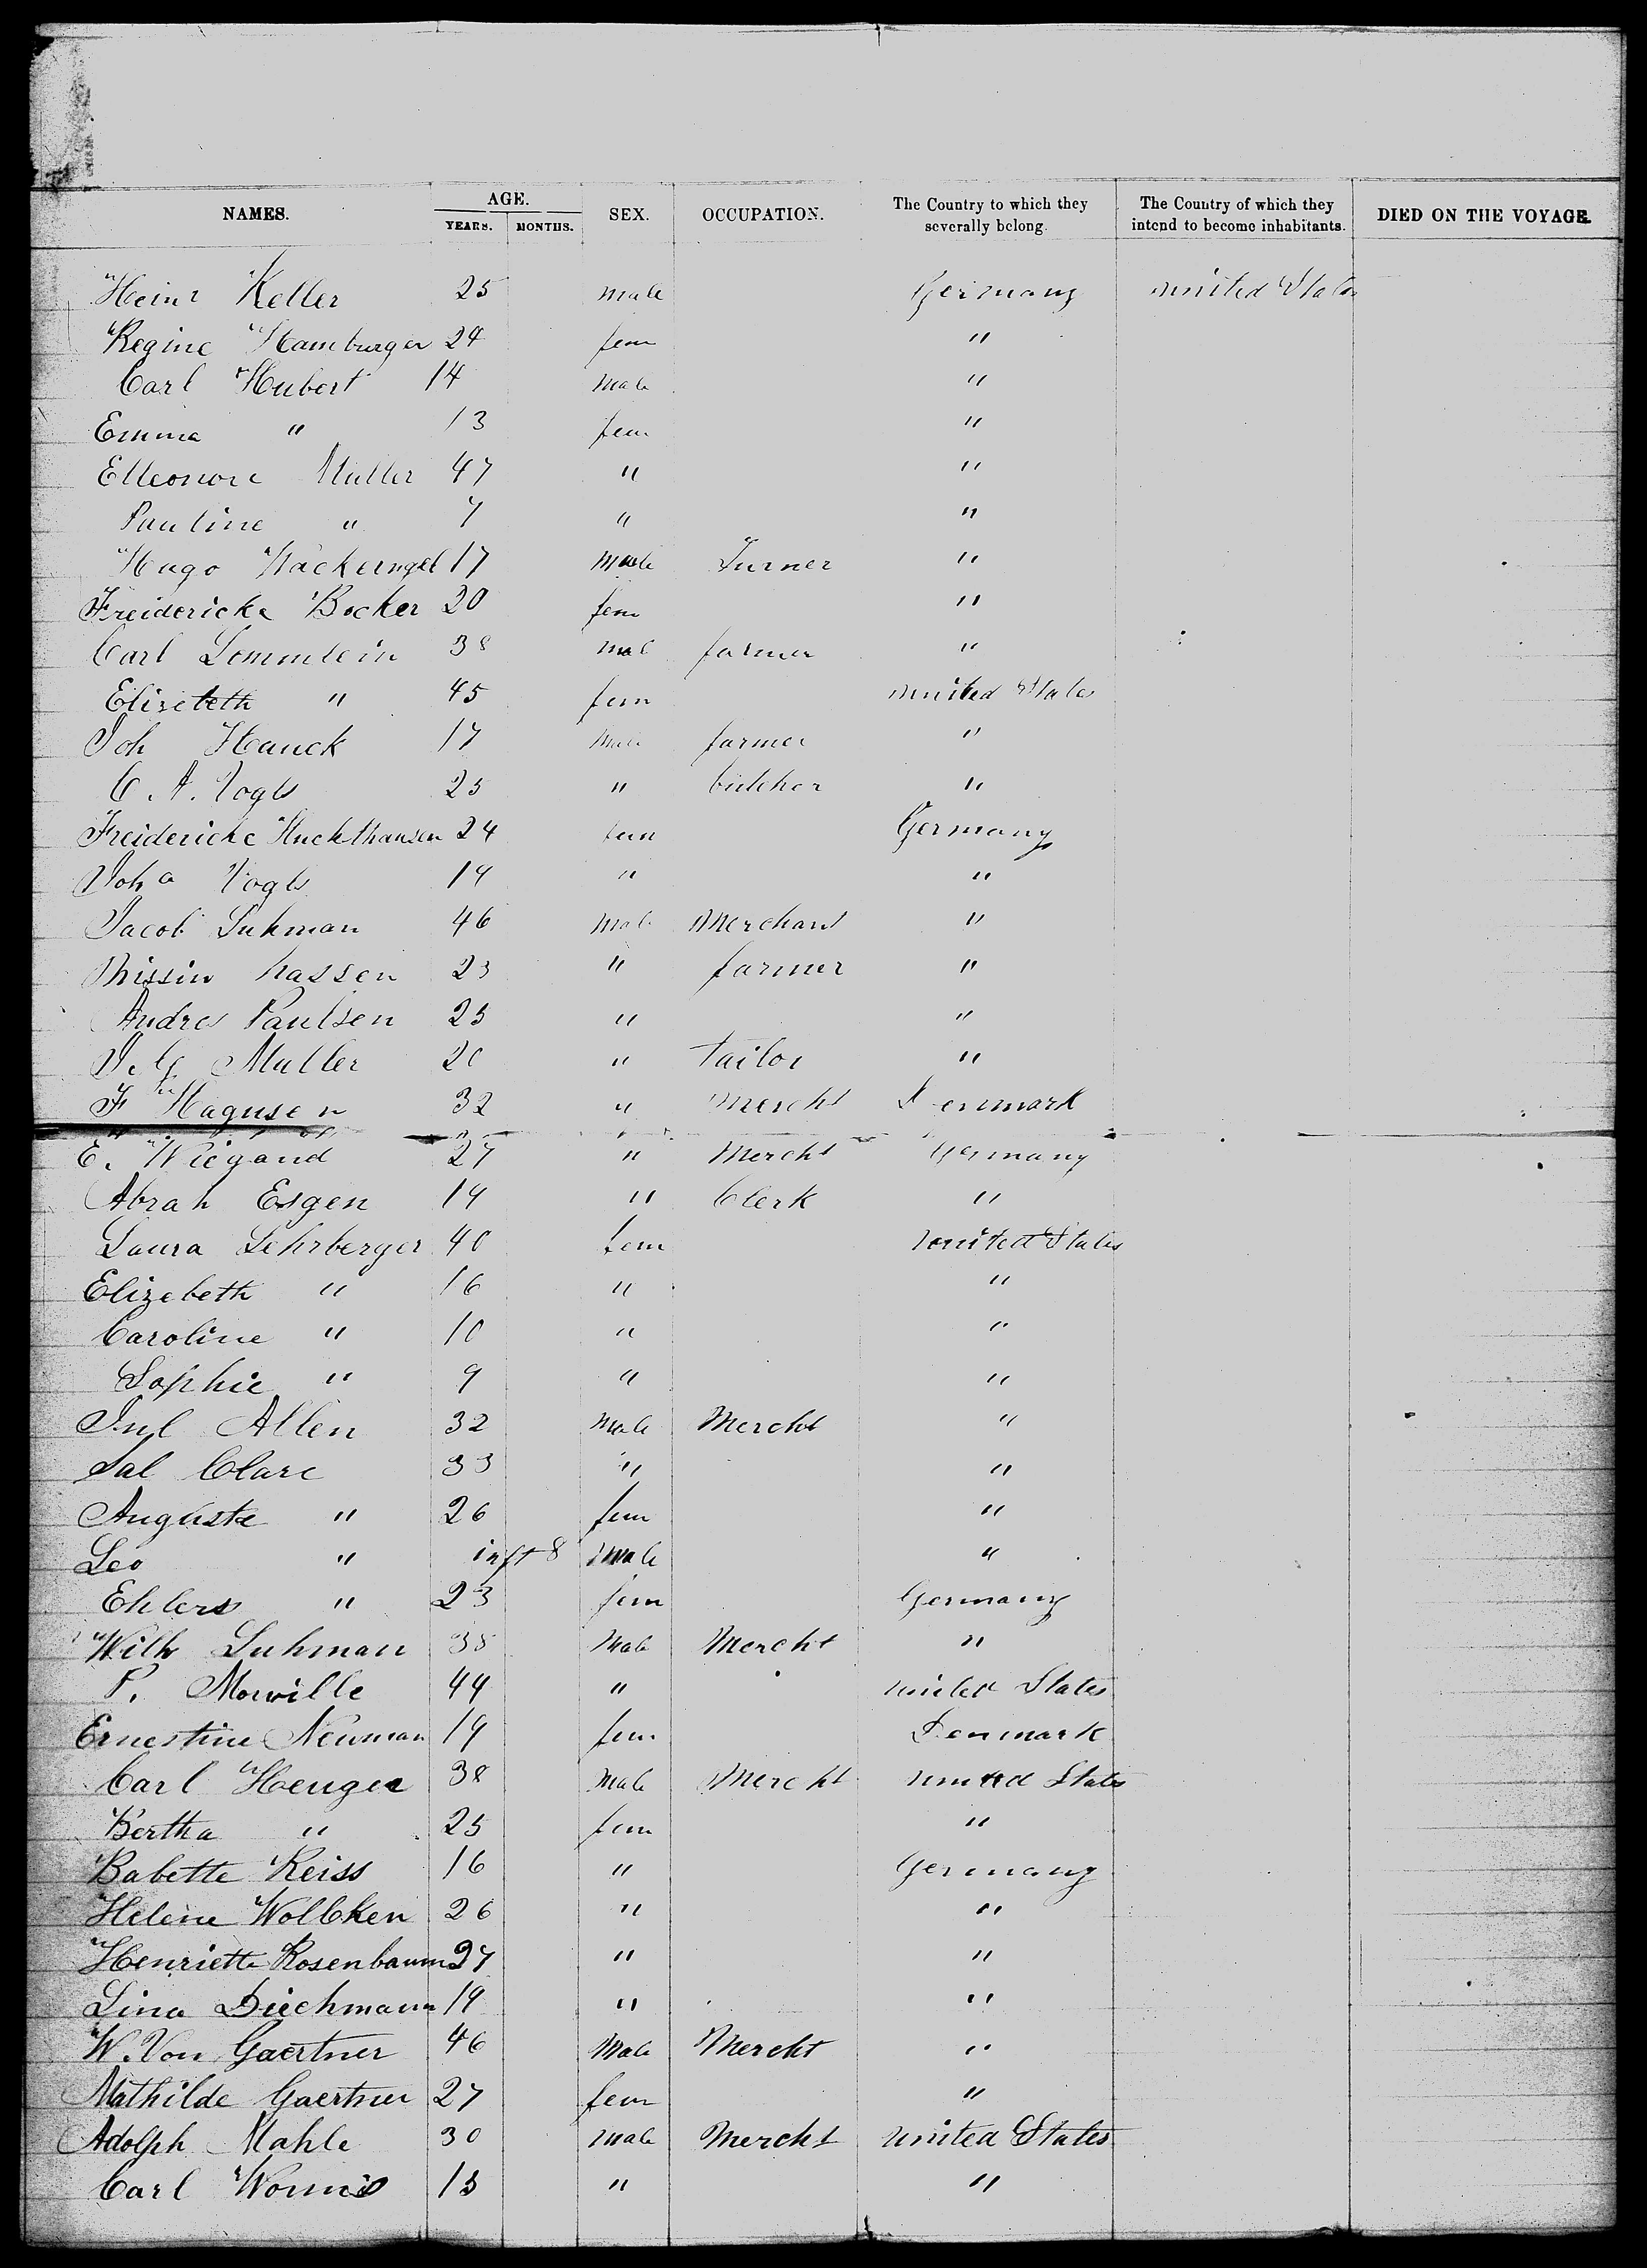 NAMES. AGE. SEX. OCCUPATION. The Country to which they severally belong. The Country of which they intend to become inhabitants. DIED ON THE VOYAGE.
YEARS. MONTHS.
Heinr Keller 25 male Germany United States
Regine Hamburger 24 fem "
Carl Hubert 14 Male "
Emma " 13 fem "
Elleonore Muller 47 " "
Pauline " 7 " "
Hugo Wackerngel 17 Male Turner "
Freidericke Becker 20 fem "
Carl Lommlein 38 mal farmer "
Elizebeth " 45 fem United States
Joh Hauck 17 Male farmer "
C. A. Vogts 25 " butcher "
Freidericke Huckthausen 24 fem Germany
Joha Vogts 19 " "
Jacob Luhman 46 Male Merchant "
hassen 23 " farmer "
Andres Paulsen 25 " "
J. G Muller 20 " Tailor "
F Hagusen 32 " Mercht Denmark
E. Wiegand 27 " Mercht Germany
Abrah Esgen 19 " Clerk "
Laura Lehrberger 40 fem United States
Elizebeth " 16 " "
Caroline " 10 " "
Sophie " 9 " "
Jul Allen 32 Male Mercht "
Sal Clare 33 " "
Auguste " 26 fem "
Leo " inft 8 Male "
Ehlers " 23 fem Germany
Wilh Luhman 35 Male Mercht "
P. Morville 44 " United States
Ernestine Newman 19 fem Denmark
Carl Henger 38 Male Mercht United States
Bertha " 25 fem "
Babette Reiss 16 " Germany
Helene Wolbken 26 " "
Henriette Rosenbaum 27 " "
Lina Diechmann 19 " "
W. Von Gaertner 46 Male Mercht "
Mathilde Gaertner 27 fem "
Adolph Mahle 30 Male Mercht United States
Carl Worms 13 " "